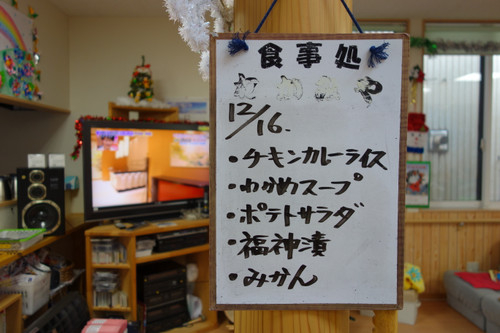 食事処
12/16.
・チキンカレーライス
・わかめスープ
・ポテトサラダ
・福神漬
・みかん